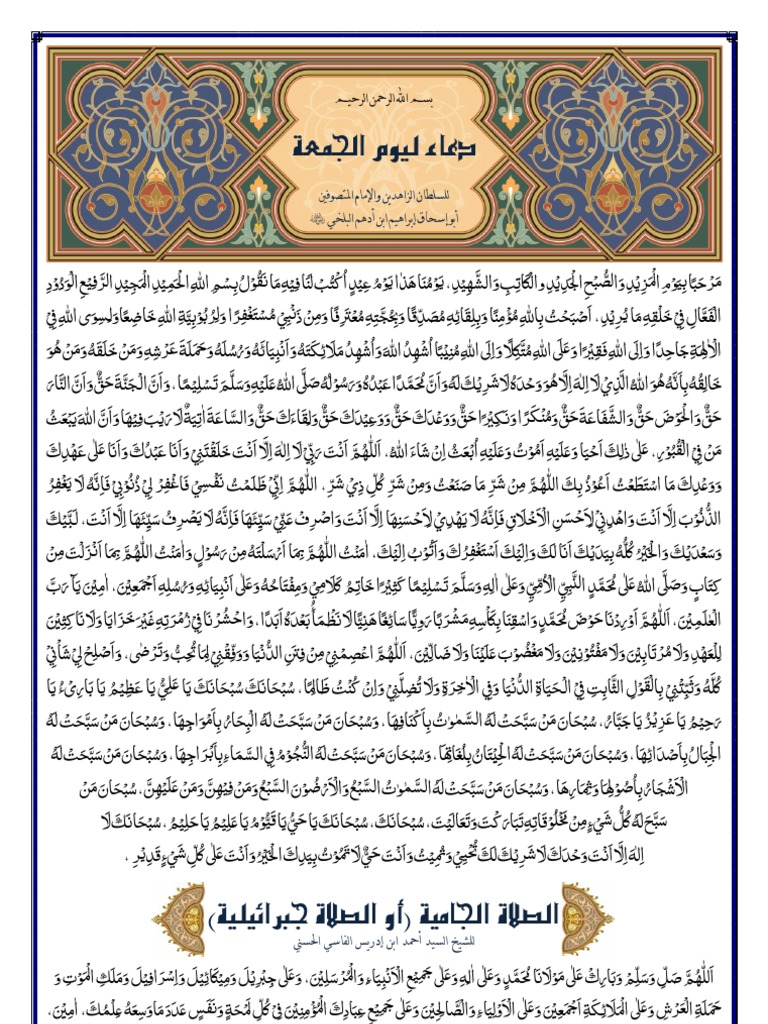 بسم الله الرحمن الرحيم
دعاء ليوم الجمعة
للسلطان الزاهدين والإمام المتصوفين
أبو إسحاق إبراهيم ابن أدهم البلخي
مَرْحَبًا بِيَوْمِ الْمَزِيْدِ وَالصُّبْحِ الْجَدِيْدِ وَالْكَاتِبِ وَالشَّهِيْدِ، يَوْمُنَا هَذَا يَوْمُ عِيْدٍ اُكْتُبْ لَنَا فِيْهِ مَا نَقُوْلُ بِسْمِ اللهِ الْحَمِيْدِ الْمَجِيْدِ الرَّفِيْعِ الْوَدُوْدِ
الْفَعَّالِ فِيْ خَلْقِهِ مَا يُرِيْدُ، اَصْبَحْتُ بِاللهِ مُؤْمِنًا وَبِلِقَائِهِ مُصَدِّقًا وَبِحُجَّتِهِ مُعْتَرِفًا وَمِنْ ذَنْبِيْ مُسْتَغْفِرًا وَلِرُبُوْبِيَّةِ اللهِ خَاضِعًا وَلِسِوَى اللهِ فِيْ
الْاٰلِهَةِ جَاحِدًا وَاِلَى اللهِ فَقِيْرًا وَعَلَى اللهِ مُتَّكِلًا وَاِلَى اللهِ مُنِيْبًا اُشْهِدُ اللهَ وَاُشْهِدُ مَلَائِكَتَهُ وَاَنْبِيَائَهُ وَرُسُلَهُ وَحَمَلَةَ عَرْشِهِ وَمَنْ خَلَقَهُ وَمَنْ هُوَ
خَالِقُهُ بِاَنَّهُ هُوَ اللهُ الَّذِيْ لَا اِلٰهَ اِلَّا هُوَ وَحْدَهُ لَا شَرِيْكَ لَهُ وَاَنَّ مُحَمَّدًا عَبْدُهُ وَرَسُوْلُهُ صَلَّى اللهُ عَلَيْهِ وَسَلَّمَ تَسْلِيْمًا، وَاَنَّ الْجَنَّةَ حَقٌّ وَاَنَّ النَّارَ
حَقٌّ وَالْحَوْضَ حَقٌّ وَالشَّفَاعَةَ حَقٌّ وَمُنْكَرًا وَنَكِيْرًا حَقٌّ وَوَعْدَكَ حَقٌّ وَوَعِيْدَكَ حَقٌّ وَلِقَاءَكَ حَقٌّ وَالسَّاعَةَ اٰتِيَةٌ لَا رَيْبَ فِيْهَا وَاَنَّ اللهَ يَبْعَثُ
مَنْ فِي الْقُبُوْرِ، عَلَى ذٰلِكَ اَحْيَا وَعَلَيْهِ اَمُوْتُ وَعَلَيْهِ اُبْعَثُ اِنْ شَاءَ اللهُ، اَللّٰهُمَّ اَنْتَ رَبِّيْ لَا اِلٰهَ اِلَّا اَنْتَ خَلَقْتَنِيْ وَاَنَا عَبْدُكَ وَاَنَا عَلٰى عَهْدِكَ
وَوَعْدِكَ مَا اسْتَطَعْتُ اَعُوْذُ بِكَ اللّٰهُمَّ مِنْ شَرِّ مَا صَنَعْتُ وَمِنْ شَرِّ كُلِّ ذِيْ شَرٍّ، اللّٰهُمَّ اِنِّيْ ظَلَمْتُ نَفْسِيْ فَاغْفِرْ لِيْ ذُنُوْبِيْ فَاِنَّهُ لَا يَغْفِرُ
الذُّنُوْبَ اِلَّا اَنْتَ وَاهْدِنِيْ لِاَحْسَنِ الْاَخْلَاقِ فَاِنَّهُ لَا يَهْدِيْ لِاَحْسَنِهَا اِلَّا اَنْتَ وَاصْرِفْ عَنِّيْ سَيِّئَهَا فَاِنَّهُ لَا يَصْرِفُ سَيِّئَهَا اِلَّا اَنْتَ، لَبَّيْكَ
وَسَعْدَيْكَ وَالْخَيْرُ كُلُّهُ بِيَدَيْكَ اَنَا لَكَ وَاِلَيْكَ اَسْتَغْفِرُكَ وَاَتُوْبُ اِلَيْكَ، اٰمَنْتُ اللّٰهُمَّ بِمَا اَرْسَلْتَهُ مِنْ رَسُوْلٍ وَاٰمَنْتُ اللّٰهُمَّ بِمَا اَنْزَلْتَ مِنْ
كِتَابٍ وَصَلَّى اللهُ عَلٰى مُحَمَّدٍ النَّبِيِّ الْاُمِّيِّ وَعَلٰى اٰلِهِ وَسَلَّمَ تَسْلِيْمًا كَثِيْرًا خَاتِمِ كَلَامِيْ وَمِفْتَاحُهُ وَعَلٰى اَنْبِيَائِهِ وَرُسُلِهِ اَجْمَعِيْنَ، اٰمِيْنَ يَا رَبَّ
الْعٰلَمِيْنَ، اَللّٰهُمَّ اَوْرِدْنَا حَوْضَ مُحَمَّدٍ وَاسْقِنَا بِكَأْسِهِ مَشْرَبًا رَوِيًّا سَائِغًا هَنِيًّا لَا نَظْمَأُ بَعْدَهُ اَبَدًا، وَاحْشُرْنَا فِيْ زُمْرَتِهِ غَيْرَ خَزَايَا وَلَا نَاكِثِيْنَ
لِلْعَهْدِ وَلَا مُرْتَابِيْنَ وَلَا مَفْتُوْنِيْنَ وَلَا مَغْضُوْبٍ عَلَيْنَا وَلَا ضَالِّيْنَ، اَللّٰهُمَّ اعْصِمْنِيْ مِنْ فِتَنِ الدُّنْيَا وَوَفِّقْنِيْ لِمَا تُحِبُّ وَتَرْضٰى، وَاَصْلِحْ لِيْ شَأْنِيْ
كُلَّهُ وَثَبِّتْنِيْ بِالْقَوْلِ الثَّابِتِ فِي الْحَيَاةِ الدُّنْيَا وَفِي الْاٰخِرَةِ وَلَا تُضِلَّنِيْ وَاِنْ كُنْتُ ظَالِمًا، سُبْحَانَكَ سُبْحَانَكَ يَا عَلِيُّ يَا عَظِيْمُ يَا بَارِئُ يَا
رَحِيْمُ يَا عَزِيْزُ يَا جَبَّارُ، سُبْحَانَ مَنْ سَبَّحَتْ لَهُ السَّمٰوٰتُ بِاَكْنَافِهَا، وَسُبْحَانَ مَنْ سَبَّحَتْ لَهُ الْبِحَارُ بِاَمْوَاجِهَا، وَسُبْحَانَ مَنْ سَبَّحَتْ لَهُ
الْجِبَالُ بِاَصْدَائِهَا، وَسُبْحَانَ مَنْ سَبَّحَتْ لَهُ الْحِيْتَانُ بِلُغَاتِهَا، وَسُبْحَانَ مَنْ سَبَّحَتْ لَهُ النُّجُوْمُ فِي السَّمَاءِ بِاَبْرَاجِهَا، وَسُبْحَانَ مَنْ سَبَّحَتْ لَهُ
الْاَشْجَارُ بِاُصُوْلِهَا وَثِمَارِهَا، وَسُبْحَانَ مَنْ سَبَّحَتْ لَهُ السَّمٰوٰتُ السَّبْعُ وَالْاَرْضُوْنَ السَّبْعُ وَمَنْ فِيْهِنَّ وَمَنْ عَلَيْهِنَّ، سُبْحَانَ مَنْ
سَبَّحَ لَهُ كُلُّ شَيْءٍ مِنْ مَخْلُوْقَاتِهِ تَبَارَكْتَ وَتَعَالَيْتَ، سُبْحَانَكَ، سُبْحَانَكَ يَا حَيُّ يَا قَيُّوْمُ يَا عَلِيْمُ يَا حَلِيْمُ، سُبْحَانَكَ لَا
اِلٰهَ اِلَّا اَنْتَ وَحْدَكَ لَا شَرِيْكَ لَكَ تُحْيِيْ وَتُمِيْتُ وَاَنْتَ حَيٌّ لَا تَمُوْتُ بِيَدِكَ الْخَيْرُ وَاَنْتَ عَلٰى كُلِّ شَيْءٍ قَدِيْرٌ،
الصلاة الجامية (أو الصلاة جبرائيلية)
للشيخ السيد أحمد ابن إدريس الفاسي الحسني
اَللّٰهُمَّ صَلِّ وَسَلِّمْ وَبَارِكْ عَلٰى مَوْلَانَا مُحَمَّدٍ وَعَلٰى اٰلِهِ وَعَلٰى جَمِيْعِ الْاَنْبِيَاءِ وَالْمُرْسَلِيْنَ، وَعَلٰى جِبْرِيْلَ وَمِيْكَائِيْلَ وَاِسْرَافِيْلَ وَمَلَكِ الْمَوْتِ وَ
حَمَلَةِ الْعَرْشِ وَعَلَى الْمَلَائِكَةِ اَجْمَعِيْنَ وَعَلَى الْاَوْلِيَاءِ وَالصَّالِحِيْنَ وَعَلٰى جَمِيْعِ عِبَادِكَ الْمُؤْمِنِيْنَ فِيْ كُلِّ لَمْحَةٍ وَنَفَسٍ عَدَدَ مَا وَسِعَهُ عِلْمُكَ، اٰمِيْنَ،